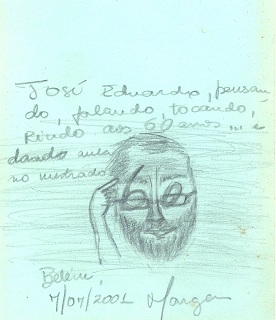 José Eduardo, pensan
do, falando, tocando,
Rindo aos 60 anos... e
dando aula
no mestrado
Belém,
7/07/2001